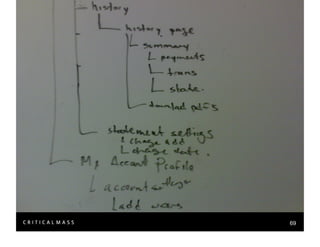 history
history page
summary
payments
trans
state.
download pdfs
statement settings
change add
change date.
My Account Profile
account settings
add users
CRITICALMASS
69